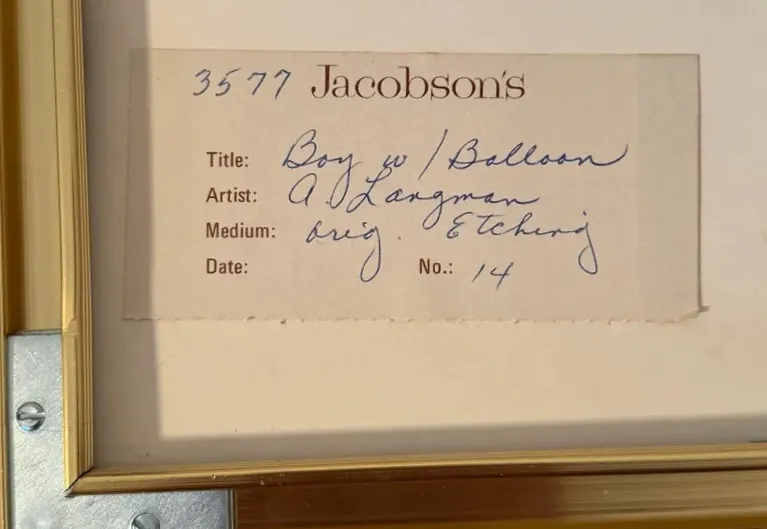 3577 Jacobson's
Title: Boy w/Balloon
Artist: A. Langman
Medium: orig. Etching
Date: No.: 14